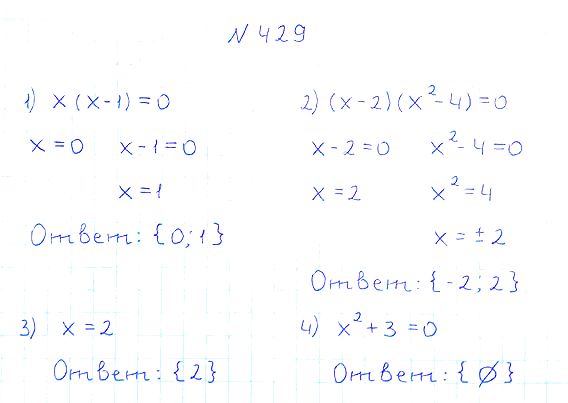 N 429
1) x (x-1) = 0
x = 0 x - 1 = 0
x = 1
Ответ: {0; 1}
2) (x - 2) (x² - 4) = 0
x - 2 = 0 x² - 4 = 0
x = 2 x² = 4
x = ± 2
Ответ: {-2; 2}
3) x = 2
Ответ: {2}
4) x² + 3 = 0
Ответ: {∅}